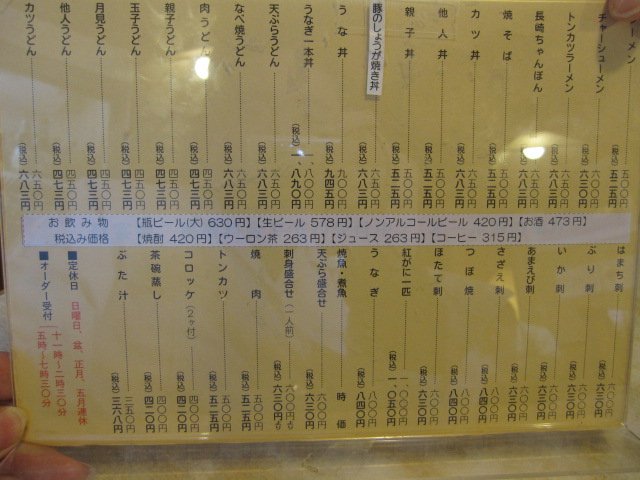 ーメン 五〇〇円 (税込) 五二五円
チャーシューメン 六〇〇円 (税込) 六三〇円
トンカツラーメン 六五〇円 (税込) 六八三円
長崎ちゃんぽん 六五〇円 (税込) 六八三円
焼そば 五〇〇円 (税込) 五二五円
カツ丼 六五〇円 (税込) 六八三円
他人丼 五〇〇円 (税込) 五二五円
親子丼 五〇〇円 (税込) 五二五円
豚のしょうが焼き丼 六五〇円 (税込) 六八三円
うな丼 九〇〇円 (税込) 九四五円
うなぎ一本丼 一、八〇〇円 (税込) 一、八九〇円
天ぷらうどん 六五〇円 (税込) 六八三円
なべ焼うどん 六五〇円 (税込) 六八三円
肉うどん 四五〇円 (税込) 四七三円
親子うどん 四五〇円 (税込) 四七三円
玉子うどん 四五〇円 (税込) 四七三円
月見うどん 四五〇円 (税込) 四七三円
他人うどん 四五〇円 (税込) 四七三円
カツうどん 六五〇円 (税込) 六八三円
お飲み物 【瓶ビール(大) 630円】【生ビール 578円】【ノンアルコールビール 420円】【お酒 473円】
税込み価格 【焼酎 420円】【ウーロン茶 263円】【ジュース 263円】【コーヒー 315円】
はまち刺 六〇〇円 (税込) 六三〇円
ぶり刺 六〇〇円 (税込) 六三〇円
いか刺 六〇〇円 (税込) 六三〇円
あまえび刺 六〇〇円 (税込) 六三〇円
さざえ刺 八〇〇円 (税込) 八四〇円
つぼ焼 八〇〇円 (税込) 八四〇円
ほたて刺 六〇〇円 (税込) 六三〇円
紅がに一匹 一、〇〇〇円 (税込) 一、〇五〇円
うなぎ 八〇〇円 (税込) 八四〇円
焼魚・煮魚 時価
天ぷら盛合せ 六〇〇円 (税込) 六三〇円
刺身盛合せ(一人前) 六〇〇円より (税込) 六三〇円より
焼肉 五〇〇円 (税込) 五二五円
トンカツ 五〇〇円 (税込) 五二五円
コロッケ(2ヶ付) 四〇〇円 (税込) 四二〇円
茶碗蒸し 四〇〇円 (税込) 四二〇円
ぶた汁 三五〇円 (税込) 三六八円
■定休日 日曜日、盆、正月、五月連休
■オーダー受付 十一時〜二時三〇分
五時〜七時三〇分